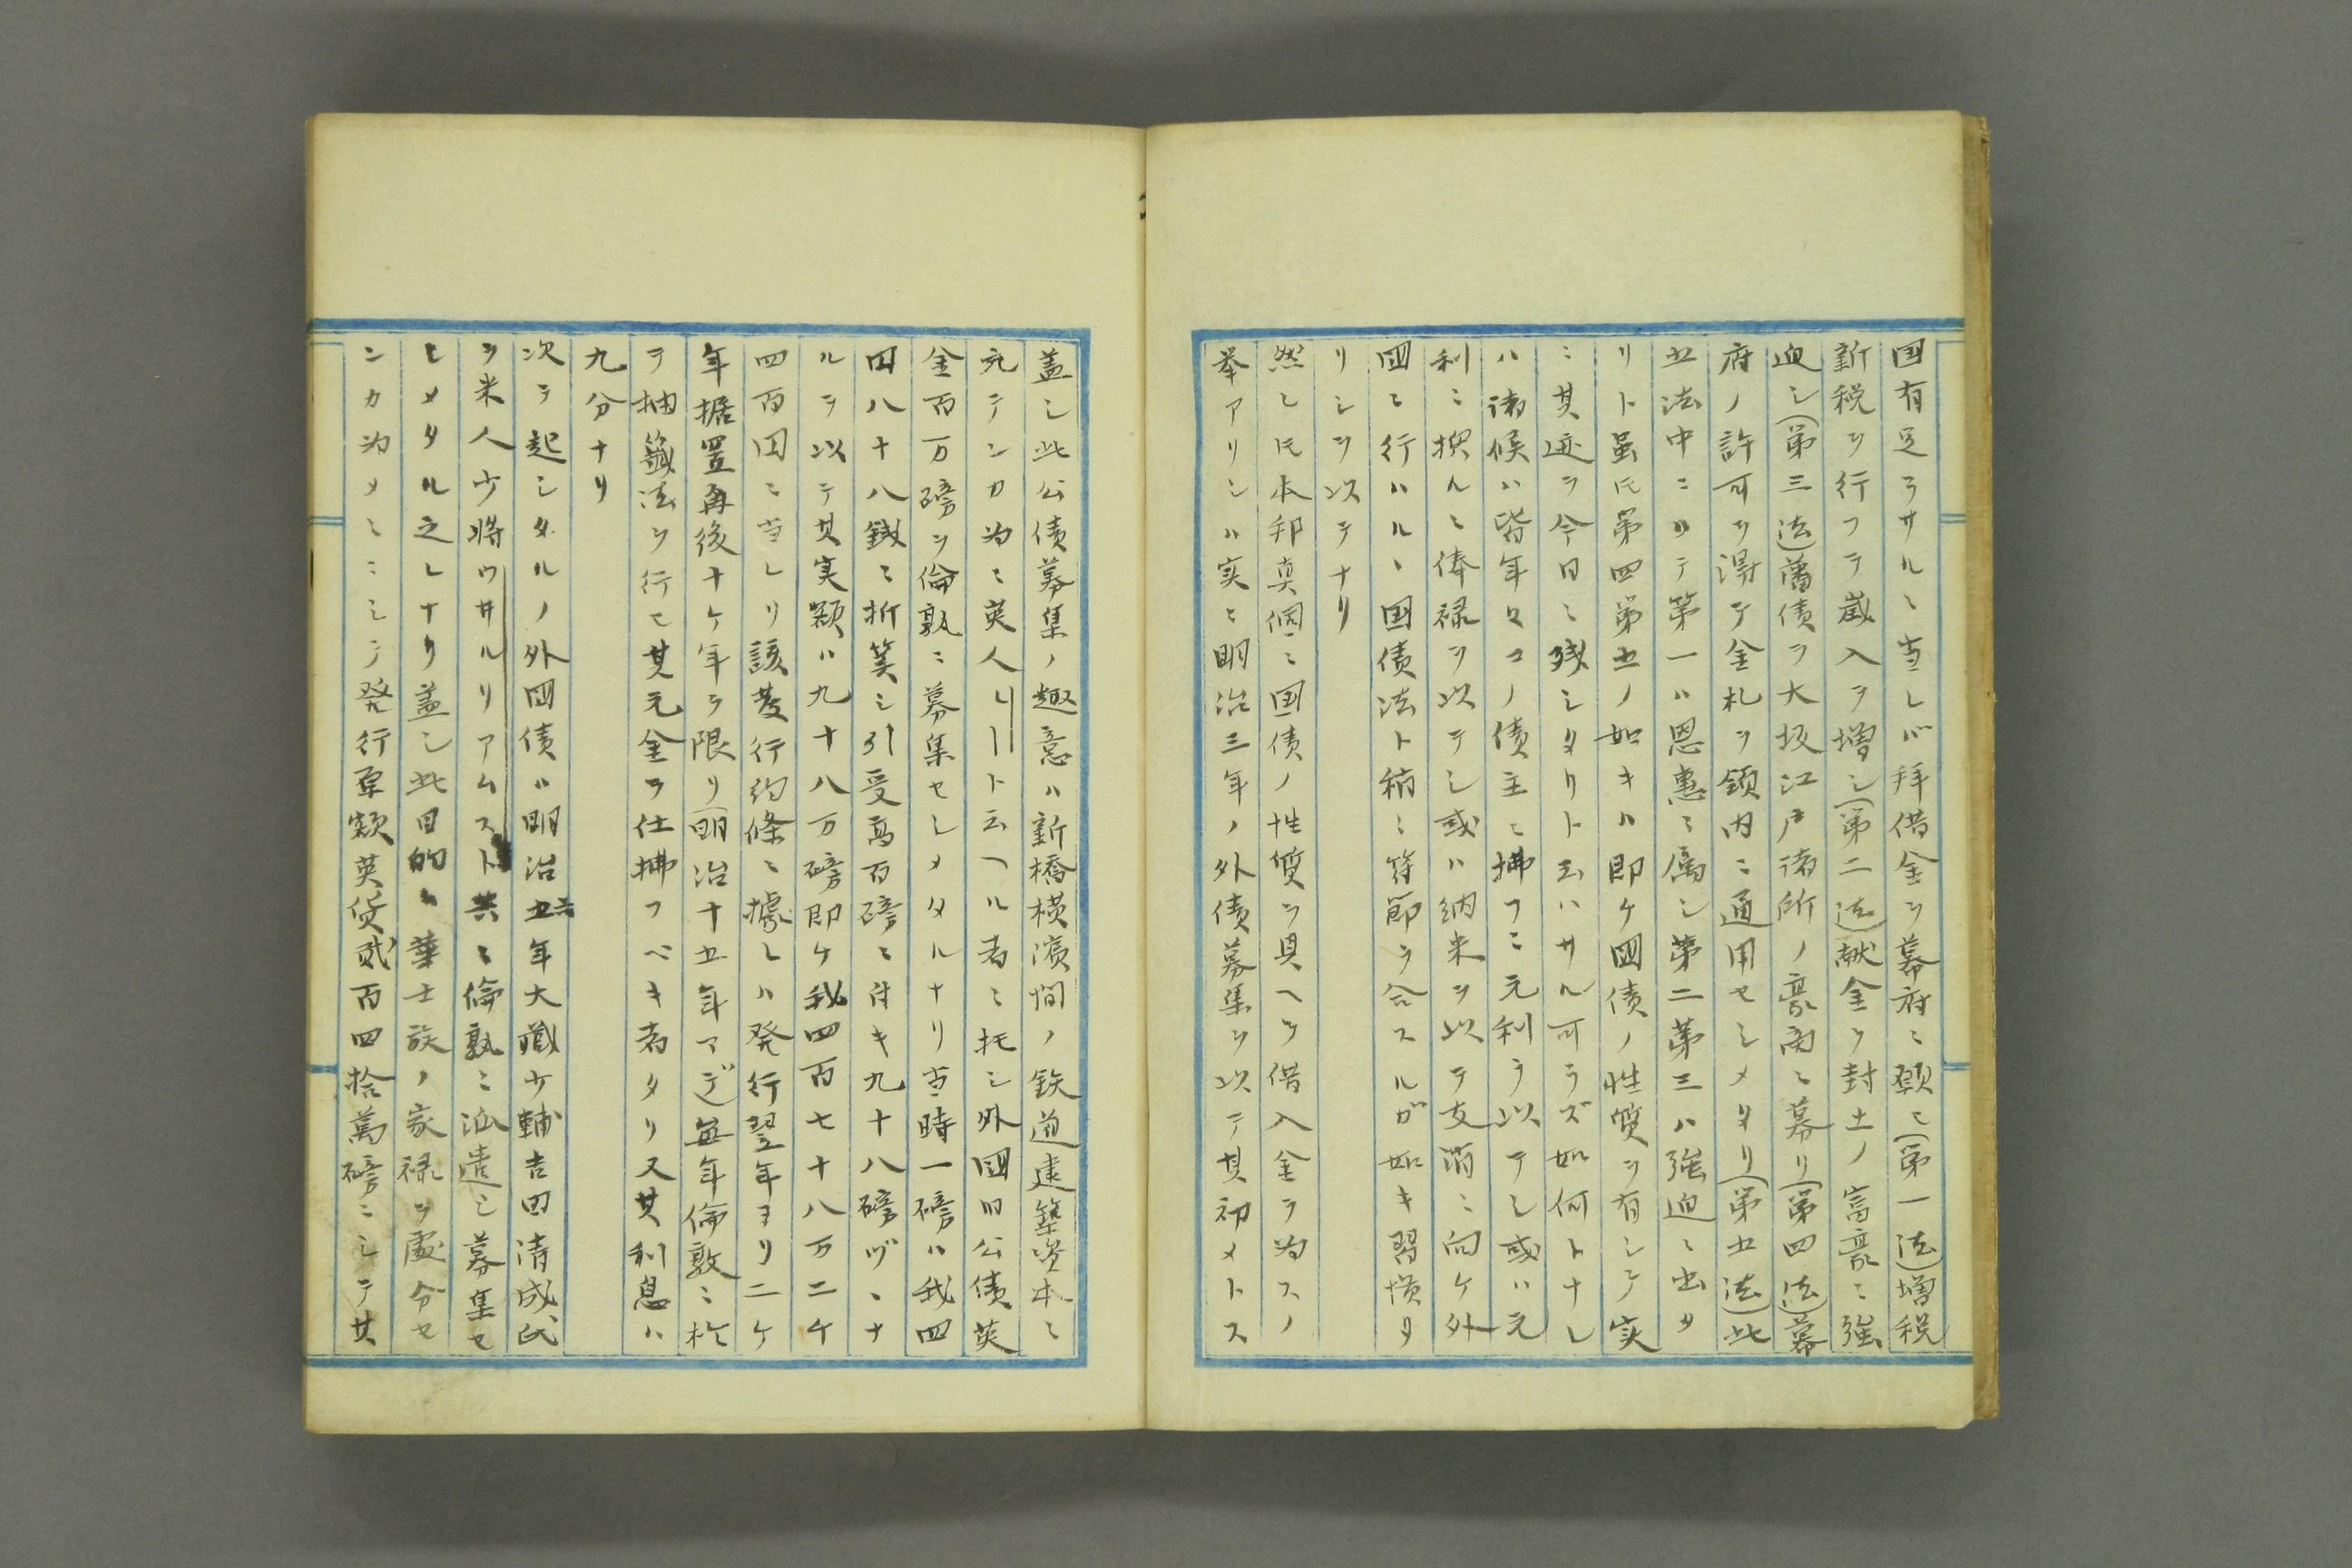 国有足ラサルニ当レバ拝借金ヲ幕府ニ願ヒ(第一法)増税
新税ヲ行フテ歳入ヲ増シ(第二法)献金ヲ封土ノ富豪ニ強
迫シ(第三法)藩債ヲ大坂江戸諸所ノ豪商ニ募リ(第四法)幕
府ノ許可ヲ得テ金札ヲ領内ニ通用セシメタリ(第五法)此
五法中ニ於テ第一ハ恩惠ニ属シ第二第三ハ強迫ニ出タ
リト虽𪜈第四第五ノ如キハ即ケ國債ノ性質ヲ有シテ実
ニ其迹ヲ今日ニ残シタリト云ハサル可ラズ如何トナレ
ハ諸候ハ皆年々コノ債主ニ拂フニ元利ヲ以テシ或ハ元
利ニ換ルニ俸禄ヲ以テシ或ハ納米ヲ以テ支消ニ向ケ外
國ニ行ハルヽ国債法ト稍ニ符節ヲ合スルガ如キ習慣タ
リシヲ以テナリ
然レ𪜈本邦真個ニ国債ノ性質ヲ具ヘテ借入金ヲ為スノ
挙アリシハ実ニ明治三年ノ外債募集ヲ以テ其初メトス
蓋シ此公債募集ノ趣意ハ新橋横濱間ノ鉄道建築資本ニ
充テンカ为ニ英人レート云ヘル者ニ托シ外國旧公債英
金百万磅ヲ倫敦ニ募集セシメタルナリ当時一磅ハ我四
円八十八錢ニ折算シ引受高百磅ニ付キ九十八磅ヅヽナ
ルヲ以テ其実額ハ九十八万磅即ケ我四百七十八万二千
四百円ニ当レリ該発行約條ニ據レハ発行翌年ヨリ二ケ
年据置再後十ケ年ヲ限リ(明治十五年マデ)毎年倫敦ニ於
テ抽籤法ヲ行ヒ其元金ヲ仕拂フベキ者タリ又其利息ハ
九分ナリ
次テ起シタルノ外國債ハ明治六年大藏少輔吉田清成氏
ヲ米人少将ウヰルリアムスト共ニ倫敦ニ派遣シ募集セ
シメタル之レナリ蓋シ此目的ハ華士族ノ家禄ヲ處分セ
ンカ为メニシテ発行原額英貨貮百四拾萬磅ニシテ其